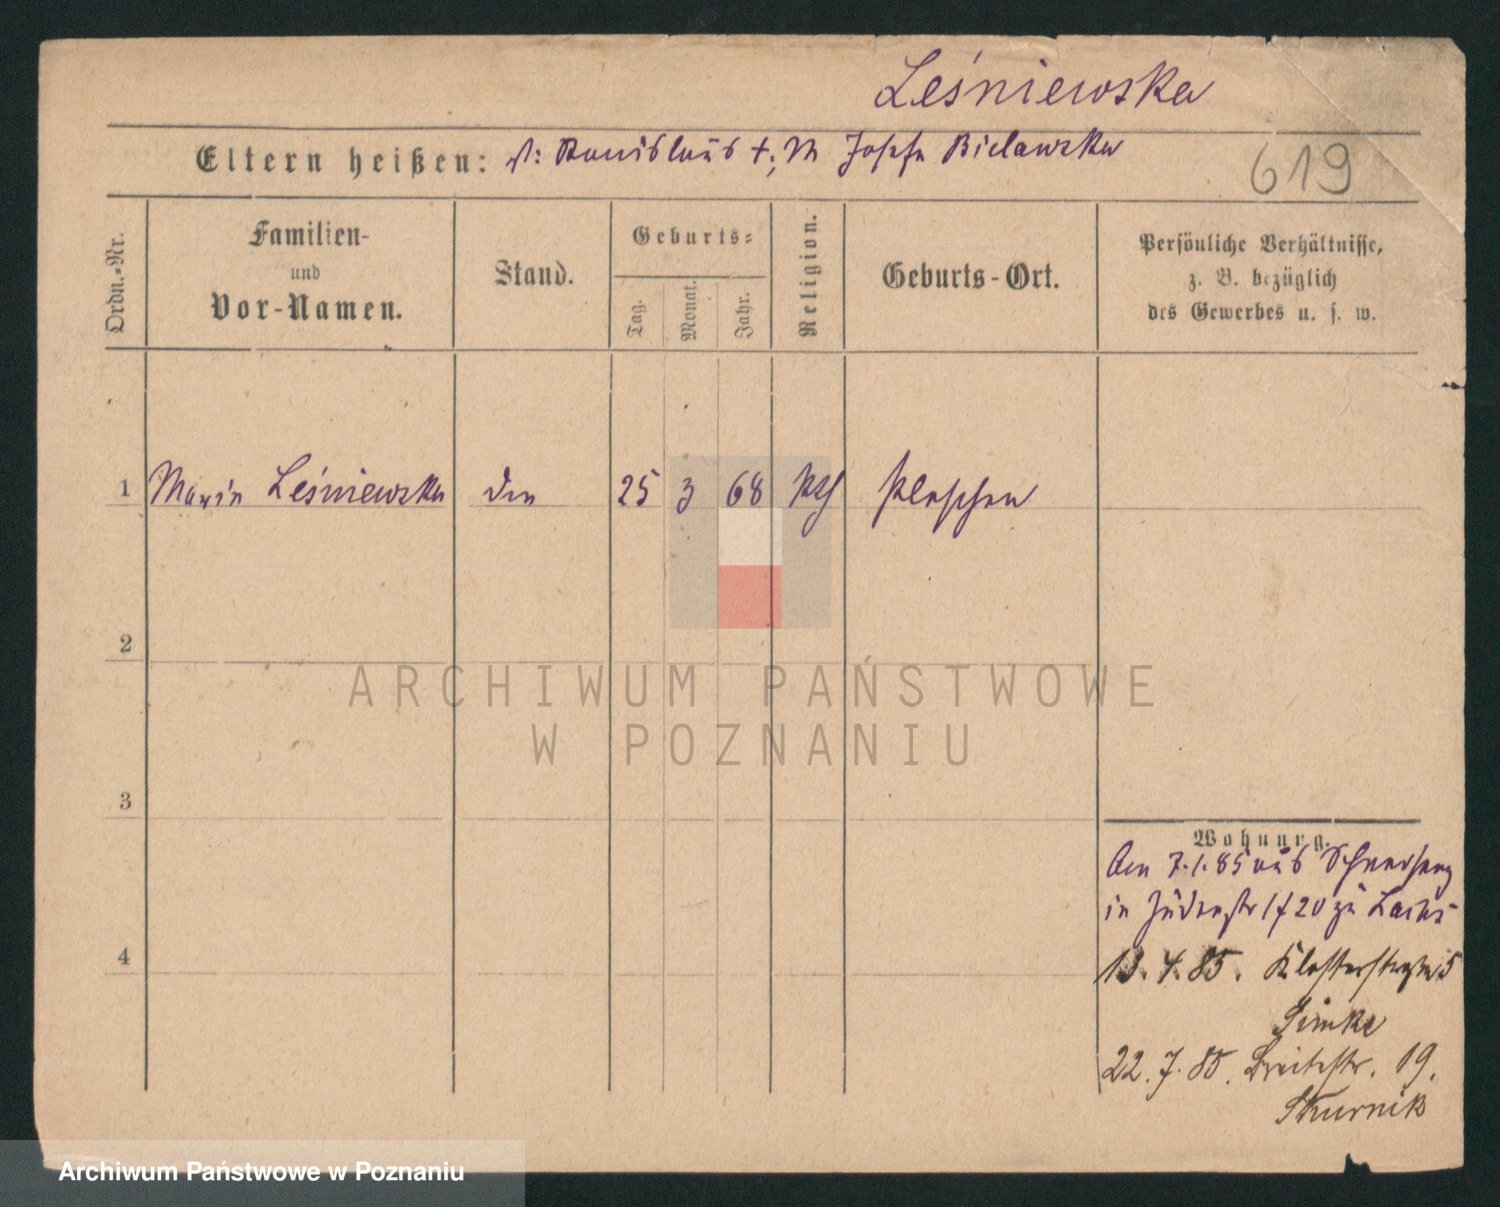 Leśniewska
Eltern heißen: V: Stanislaus †, M Josefa Bielawska
619
Ordn.-Nr.
Familien-
und
Vor-Namen.
Stand.
Geburts-
Tag.
Monat.
Jahr.
Religion.
Geburts-Ort.
Persönliche Verhältnisse,
z. B. bezüglich
des Gewerbes u. s. w.
1 Maria Leśniewska 25 3 68 kth Pleschen
2
ARCHIWUM PAŃSTWOWE
W POZNANIU
3
Wohnung.
Am 7.1.85 aus
in Judenstr 1 f 20 zu
4
13.4.85. Klosterstraße 5
Simke
22.7.85. Breitestr. 19.
Skurnik
Archiwum Państwowe w Poznaniu